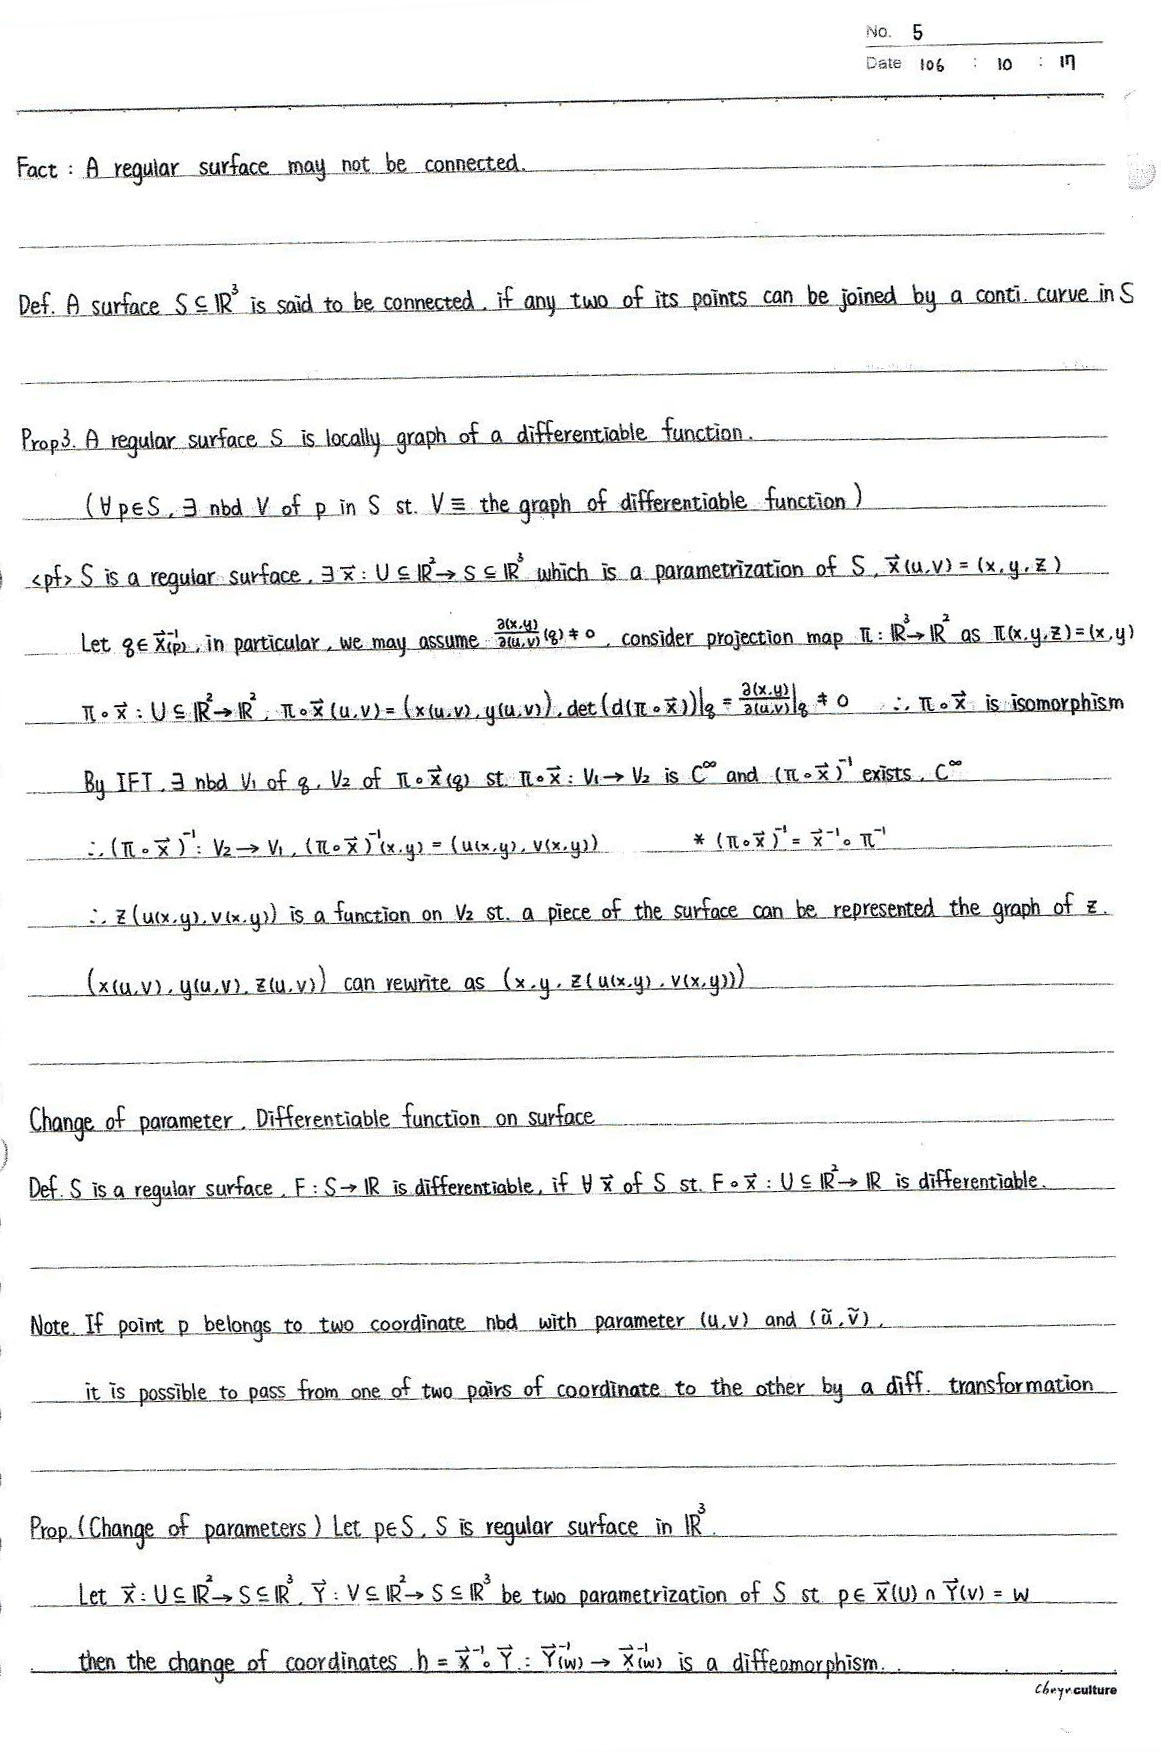 No. 5
Date 106 : 10 : 17
Fact : A regular surface may not be connected.
Def. A surface S ⊆ ℝ³ is said to be connected, if any two of its points can be joined by a conti. curve in S
Prop3. A regular surface S is locally graph of a differentiable function.
(∀p∈S, ∃ nbd V of p in S st. V ≡ the graph of differentiable function)
<pf> S is a regular surface, ∃ x⃗ : U ⊆ ℝ² → S ⊆ ℝ³ which is a parametrization of S, x⃗(u,v) = (x,y,z)
Let q ∈ x⃗⁻¹(p), in particular, we may assume ∂(x,y)/∂(u,v)(q) ≠ 0, consider projection map π : ℝ³ → ℝ² as π(x,y,z) = (x,y)
π∘x⃗ : U ⊆ ℝ² → ℝ², π∘x⃗(u,v) = (x(u,v), y(u,v)), det(d(π∘x⃗))|q = ∂(x,y)/∂(u,v)|q ≠ 0 ∴ π∘x⃗ is isomorphism
By IFT, ∃ nbd V₁ of q, V₂ of π∘x⃗(q) st. π∘x⃗ : V₁ → V₂ is C^∞ and (π∘x⃗)⁻¹ exists, C^∞
∴ (π∘x⃗)⁻¹ : V₂ → V₁, (π∘x⃗)⁻¹(x,y) = (u(x,y), v(x,y)) * (π∘x⃗)⁻¹ = x⃗⁻¹∘π⁻¹
∴ z(u(x,y), v(x,y)) is a function on V₂ st. a piece of the surface can be represented the graph of z.
(x(u,v), y(u,v), z(u,v)) can rewrite as (x, y, z(u(x,y), v(x,y)))
Change of parameter, Differentiable function on surface
Def. S is a regular surface, F : S → ℝ is differentiable, if ∀ x⃗ of S st. F∘x⃗ : U ⊆ ℝ² → ℝ is differentiable.
Note. If point p belongs to two coordinate nbd with parameter (u,v) and (ũ,ṽ),
it is possible to pass from one of two pairs of coordinate to the other by a diff. transformation
Prop. (Change of parameters) Let p∈S, S is regular surface in ℝ³.
Let x⃗ : U ⊆ ℝ² → S ⊆ ℝ³, Y⃗ : V ⊆ ℝ² → S ⊆ ℝ³ be two parametrization of S st p ∈ x⃗(U) ∩ Y⃗(V) = W
then the change of coordinates h = x⃗⁻¹∘Y⃗ : Y⃗⁻¹(W) → x⃗⁻¹(W) is a diffeomorphism.